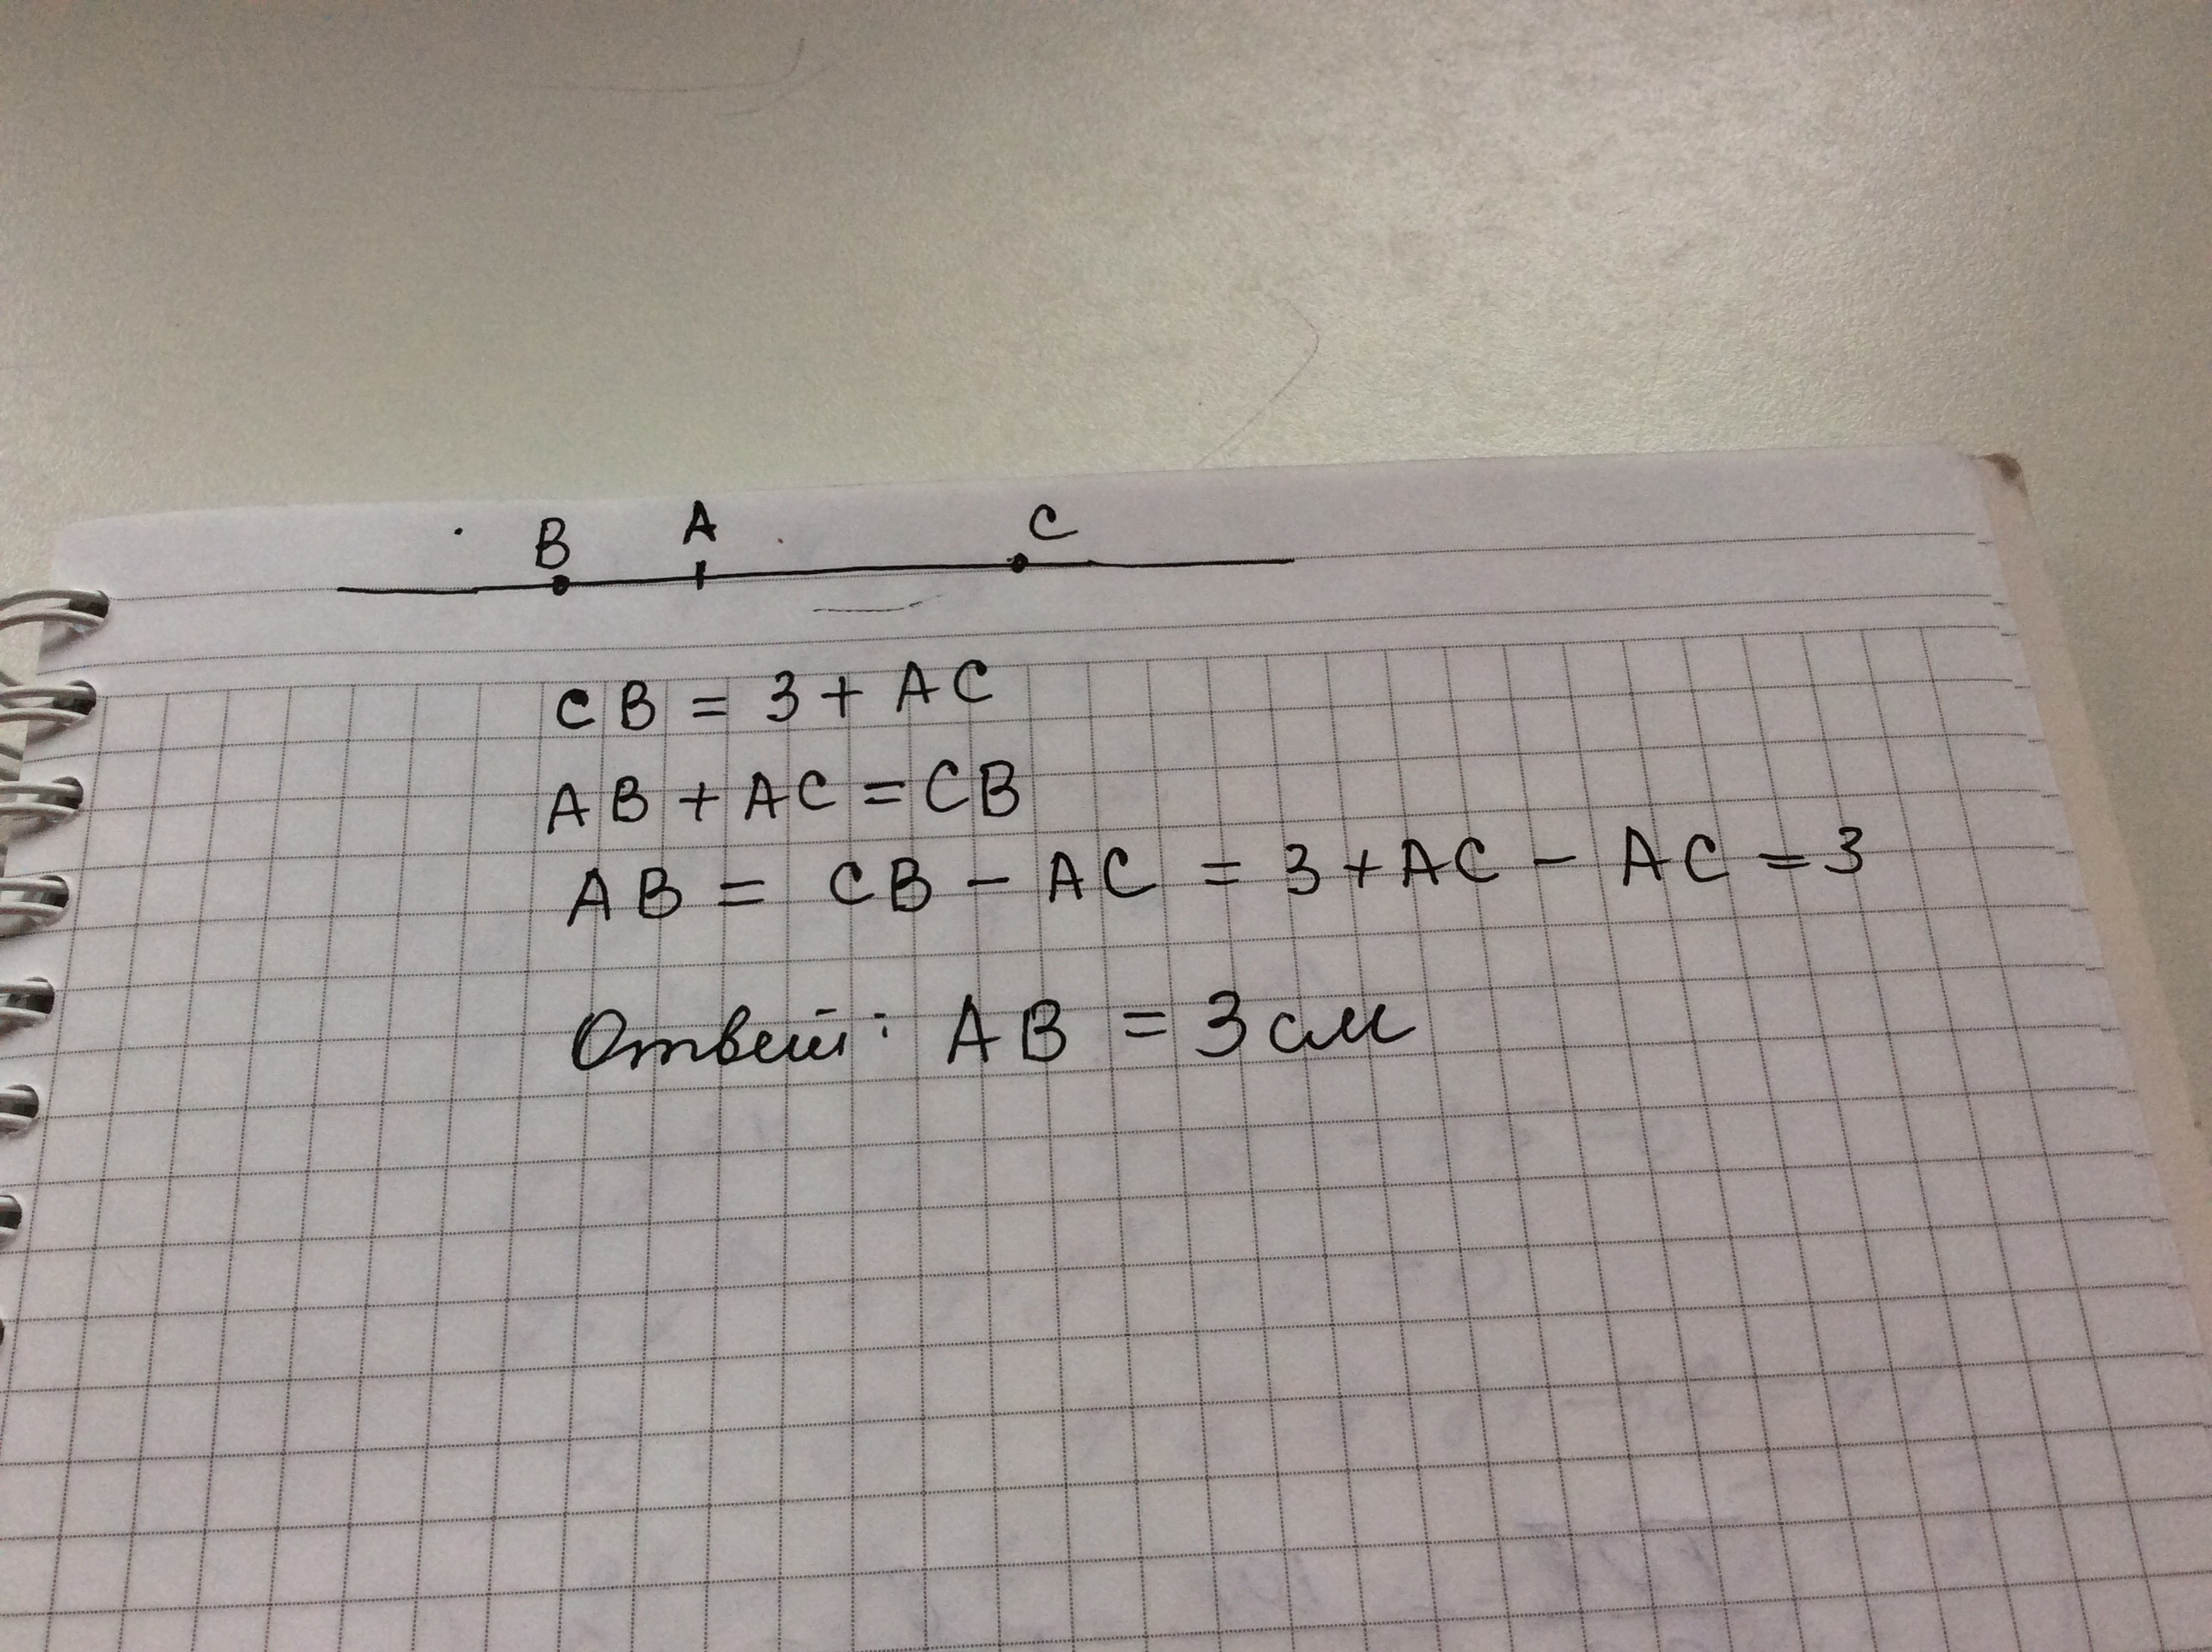 B A C
CB = 3 + AC
AB + AC = CB
AB = CB - AC = 3 + AC - AC = 3
Ответ: AB = 3 см